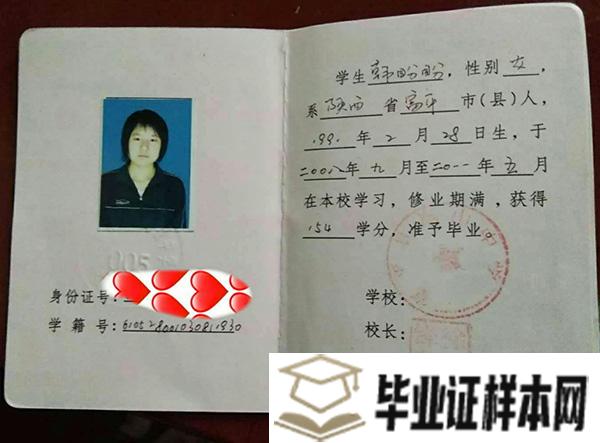 身份证号:
学籍号:610528001030811930
学生韩盼盼,性别女,
系陕西省富平市(县)人,
199 年2月28日生,于
二00八年九月至二0一一年五月
在本校学习,修业期满,获得
154学分,准予毕业。
学校:
校长
毕业证样本网